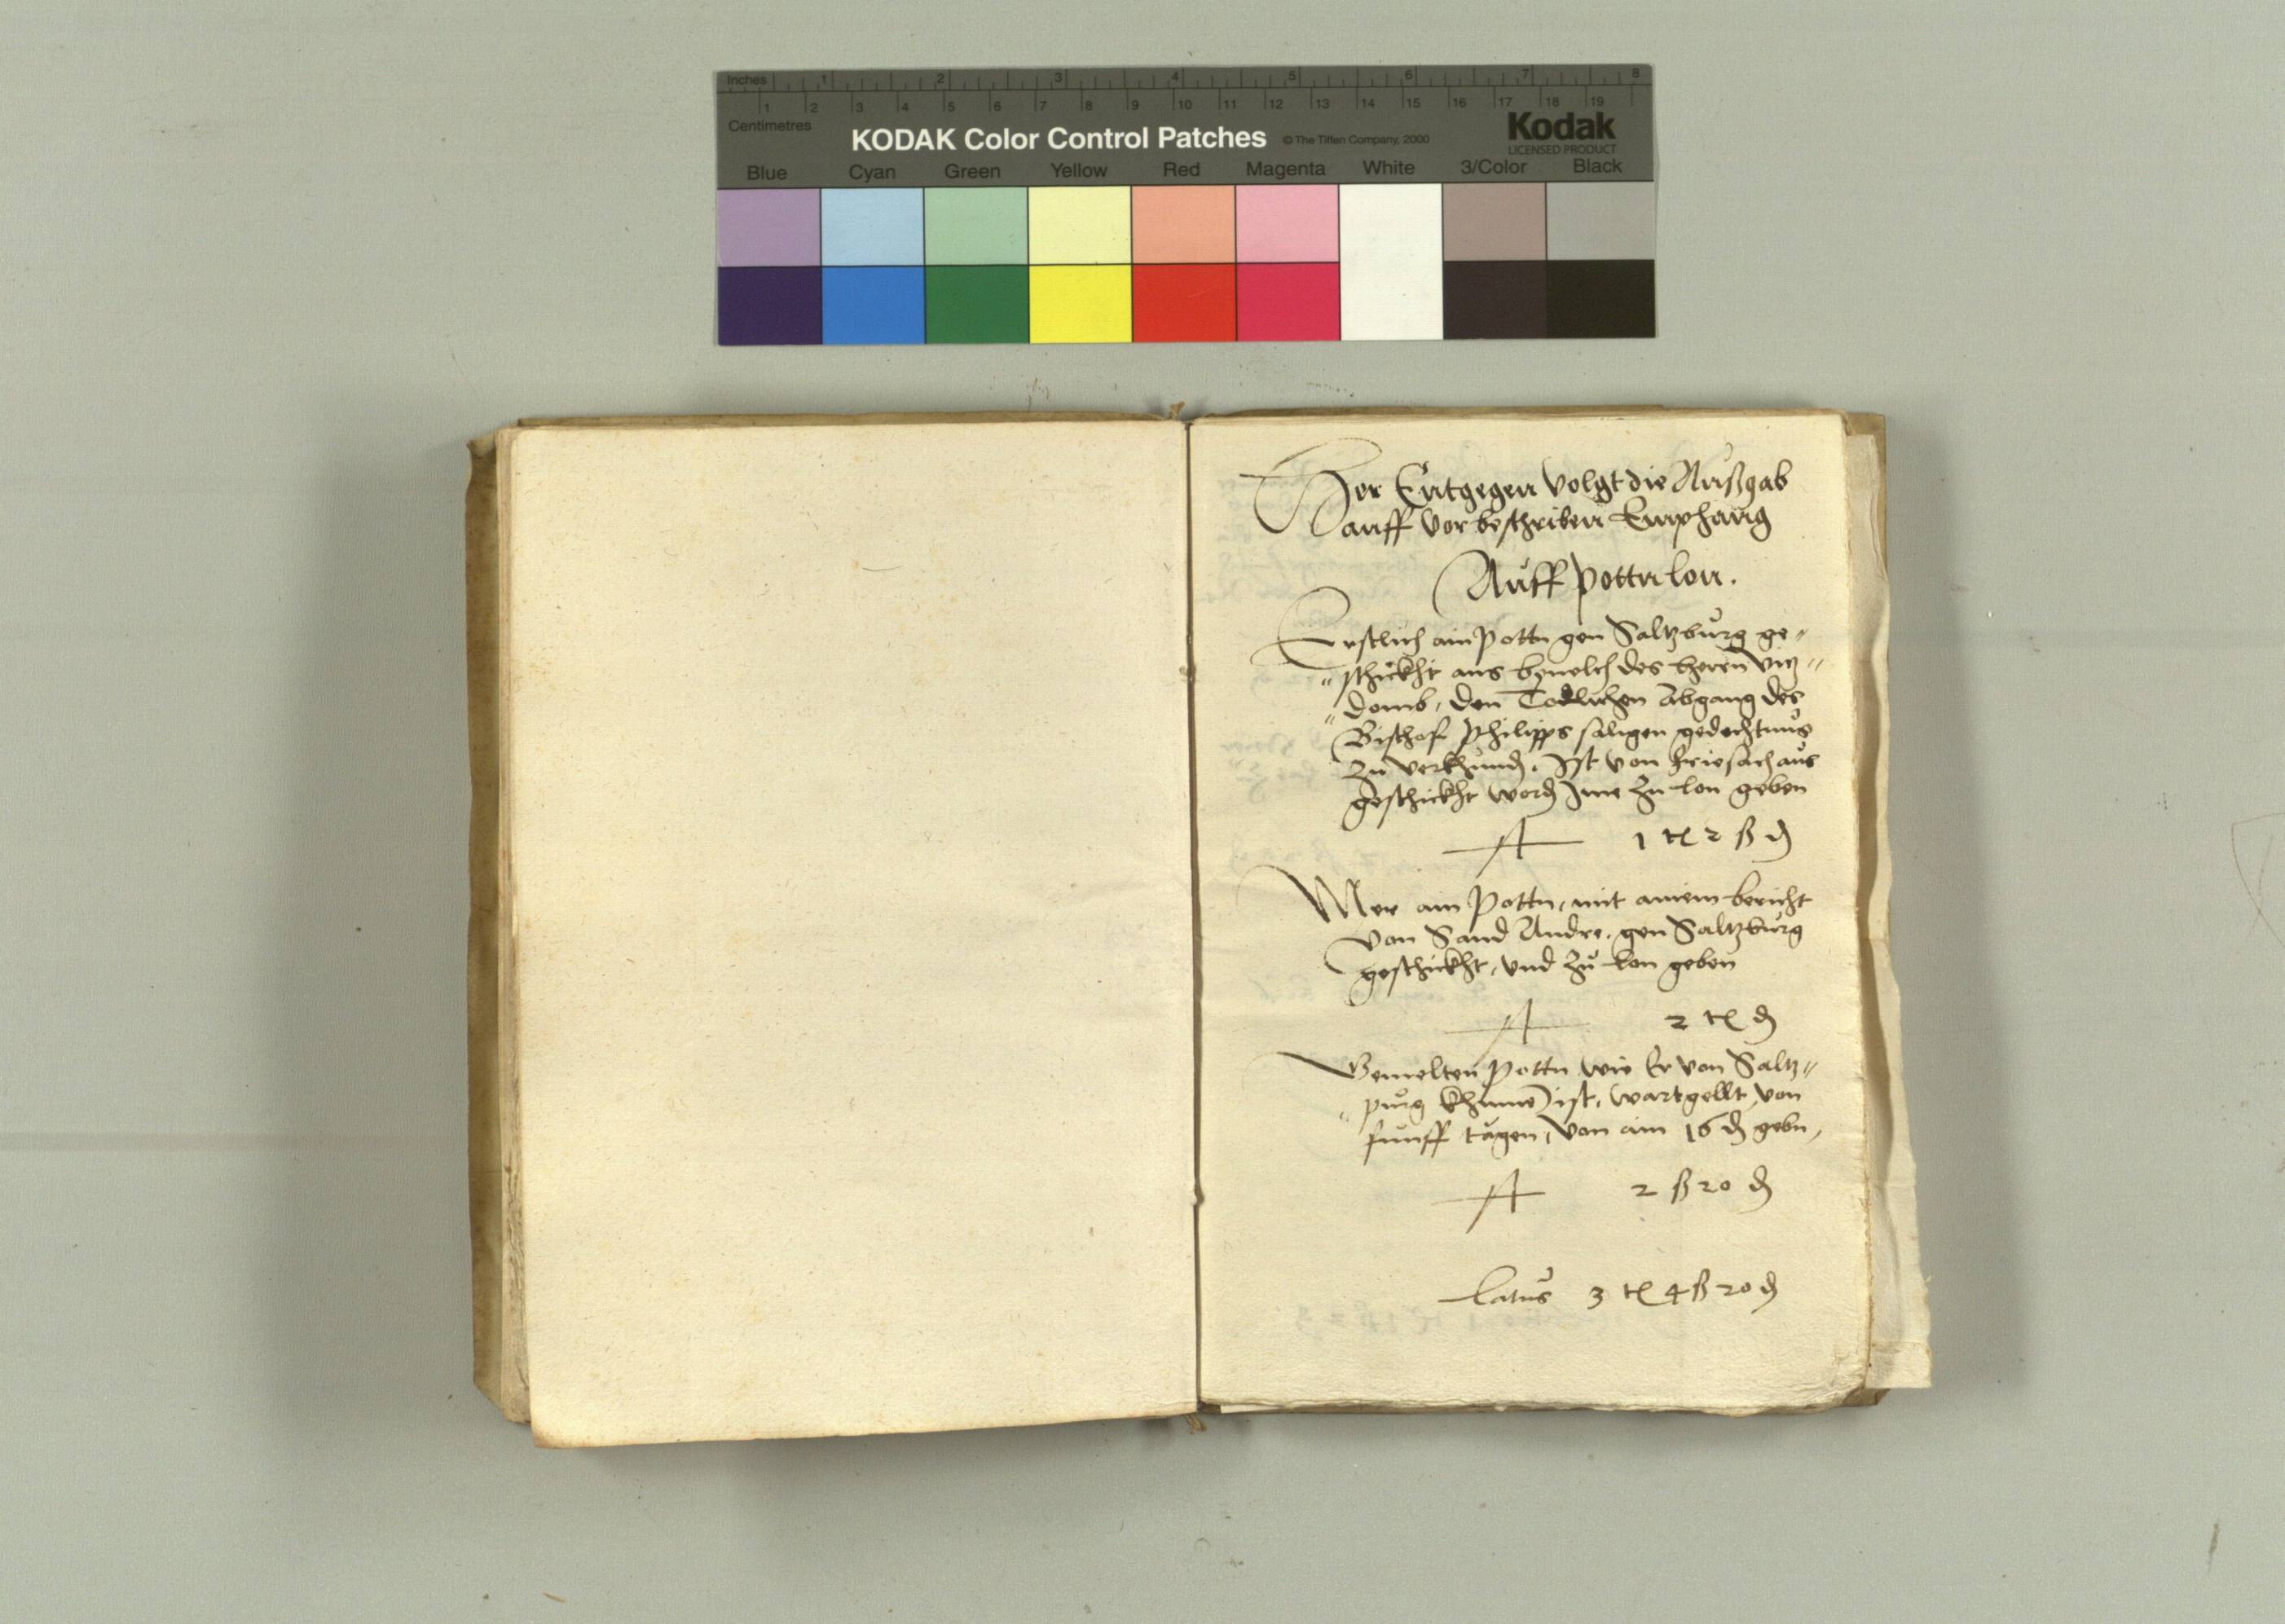 Inches 1 2 3 4 5 6 7 8
1 2 3 4 5 6 7 8 9 10 11 12 13 14 15 16 17 18 19
Centimetres
KODAK Color Control Patches © The Tiffen Company, 2000 Kodak
LICENSED PRODUCT
Blue Cyan Green Yellow Red Magenta White 3/Color Black
Her Entgegen Volgt die Außgab
auff vorbeschriben Emphang
Auff pottn lon.
Erstlich ain Pottn gen Saltzburg ge-
schickht aus beuelch des herrn vitz-
domb, den Todlichen Abgang des
Bischof Philipps saligen gedechtnus
zu verkhund, Ist von Friesach aus
geschickht word Ime zu lon geben
1 ℔ 2 ß ₰
Mer ain Pottn, mit ainem bericht
von Sand Andre, gen Saltzburg
geschickht, vnd zu lon geben
2 ℔ ₰
Bemelten Pottn wie Er von Saltz-
purg khume ist, wartgellt von
funff tagen, von aim 16 ₰ gebn,
2 ß 20 ₰
Latus 3 ℔ 4 ß 20 ₰